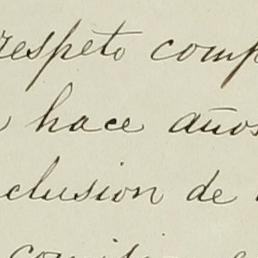 respeto comp
hace años
clusion de